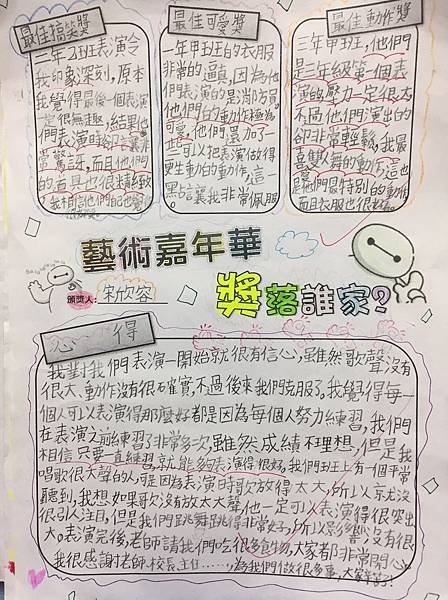 最佳搞笑獎
三年2班表演令
我印象深刻,原本
我覺得最後一個表演
一定很無趣,結果他
們表演時卻讓我非
常驚訝,而且他們
的道具也很精緻
我相信他們自己也
最佳可愛獎
一年甲班的衣服
非常的逼真,因為他
們表演的是消防員
他們的動作極為可
愛,他們還加了一
些可以把表演做得
更生動的動作,這一
點讓我非常佩服
最佳動作獎
三年甲班,他們
是三年級第一個表
演的,壓力一定很大
不過他們演出的
卻非常輕鬆,我最
喜歡跳舞的動作,這也
是他們最特別的動作
而且衣服也很
藝術嘉年華
頒獎人:
獎落誰家?
心得
我對我們表演一開始就很有信心,雖然歌聲沒有
很大、動作沒有很確實,不過後來我們克服了,我覺得每一
個人可以表演得那麼好都是因為每個人努力練習,我們
在表演之前練習了非常多次,雖然成績不理想,但是我
相信只要一直練習就能夠表演得很好,我們班上有一個平常
唱歌很大聲的人,可是因為表演時歌放得太大,所以就沒
聽到,我想如果歌沒有放太大聲,他一定可以表演得很突出
很引人注目,但是我們跳舞跳得非常好,所以影響沒有很
大。表演完後,老師請我們吃很多食物,大家都非常開心
我很感謝老師、校長、主任……,為我們做很多事,大家辛苦了!